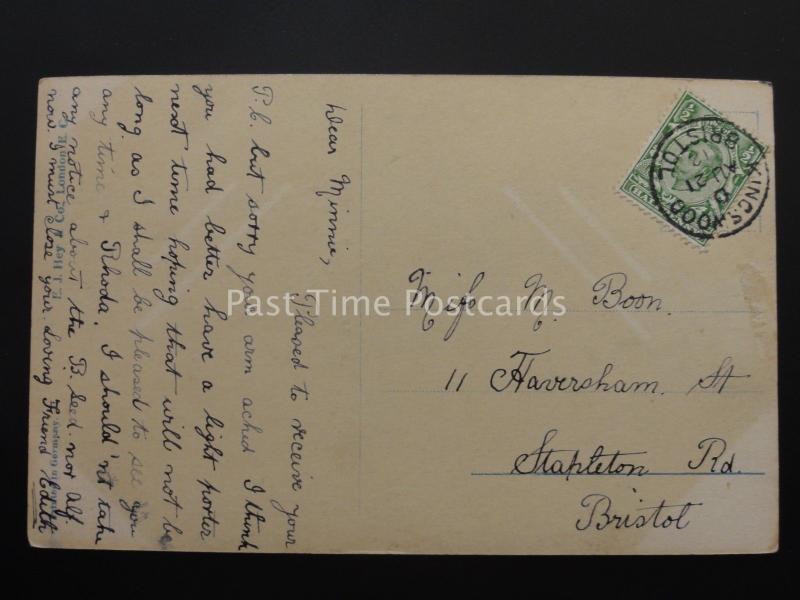 Dear Minnie,
Pleased to receive your
P.C. but sorry your arm ached I think
you had better have a light porter
next time hoping that will not be
long as I shall be pleased to see you
any time & Rhoda. I should'nt take
any notice about the B. Seed. nor Alf.
now I must close your Loving Friend Edith
E. J. Hey & Co., London, E.C.
Miss M. Boon.
11 Haversham. St
Stapleton Rd.
Bristol
KINGSWOOD
BRISTOL
½
½
Past Time Postcards